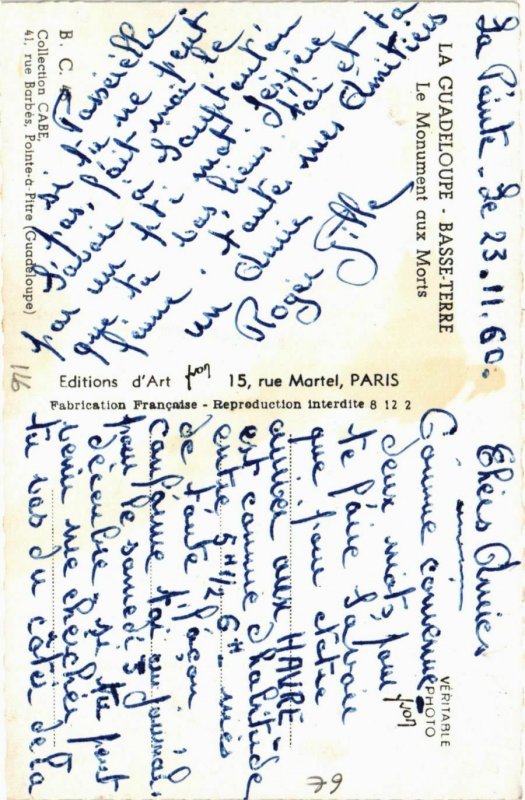 La Pointe. Le 23.11.60.
LA GUADELOUPE - BASSE-TERRE
Le Monument aux Morts
Chers Amies
Comme convenue
deux mots pour
te faire savoir
que pour notre
arriver aux HAVRE
est comme d'habitude
entre 5H 1/2 6H. mes
de toute façon, il
confirme toi au journal.
pour le samedi 3
Décembre. si tu peut
venir me chercher
tu vas du côtés de la
Passerelle.
si tu ne peut
pas, fait moi le
savoir à
par un pti mot. J'éspère
que tu vas bien. toi et ta
femme. toute mes Amitiés
un Amie
Roger
B. C.
Collection CABE,
41, rue Barbès, Pointe-à-Pitre (Guadeloupe)
Editions d'Art Yvon 15, rue Martel, PARIS
Fabrication Française - Reproduction interdite 8 12 2
VÉRITABLE
PHOTO
Yvon
116
79